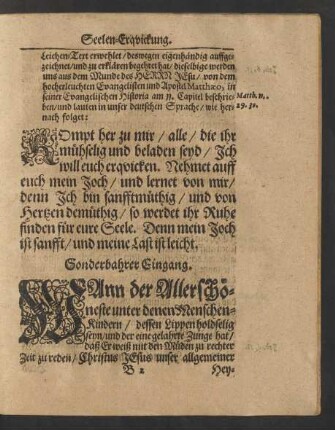 Seelen-Erqvickung.
Leichen-Text erwehlet / deswegen eigenhändig auffge-
zeichnet / und zu erklären begehret hat / dieselbige werden
uns aus dem Munde des HERRN JEsu / von dem
hocherleuchten Evangelisten und Apostel Matthæo, in
seiner Evangelischen Historia am 11. Capitel beschrie-
Matth. 11.
ben / und lauten in unser deutschen Sprache / wie her-
29. 30.
nach folget:
KOmpt her zu mir / alle / die ihr
mühselig und beladen seyd / Ich
will euch erqvicken. Nehmet auff
euch mein Joch / und lernet von mir /
denn Ich bin sanfftmüthig / und von
Hertzen demüthig / so werdet ihr Ruhe
finden für eure Seele. Denn mein Joch
ist sanfft / und meine Last ist leicht.
Sonderbahrer Eingang.
WAnn der Allerschö-
neste unter denen Menschen-
Kindern / dessen Lippen holdselig
seyn / und der eine gelahrte Zunge hat /
daß Er weiß mit den Müden zu rechter
Zeit zu reden / Christus JEsus unser allgemeiner
B 2
Hey-